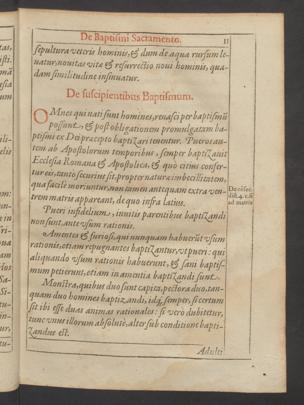 De Baptismi Sacramento. 11
sepultura veteris hominis, & dum de aqua rursum le-
uatur, nouitas vitæ & resurrectio noui hominis, qua-
dam similitudine insinuatur.
De suscipientibus Baptismum.
OMnes qui nati sunt homines, renasci per baptismũ
possunt, & post obligationem promulgatam ba-
ptismi ex Dei præcepto baptizari tenentur. Pueros au-
tem ab Apostolorum temporibus, semper baptizauit
Ecclesia Romana & Apostolica, & quo citius confer-
tur eis, tanto securius sit, propter natura imbecillitatem,
qua facile moriuntur, non tamen antequam extra ven-
trem matris appareant, de quo infra latius.
De cõsec.
dist. 4. c. si
ad matris
Pueri infidelium, inuitis parentibus baptizandi
non sunt, ante vsum rationis.
Amentes & furiosi, qui nunquam habuerũt vsum
rationis, etiam repugnantes baptizantur, vt pueri: qui
aliquando vsum rationis habuerunt, & sani baptis-
mum petierunt, etiam in amentia baptizandi sunt.
Monstra, quibus duo sunt capita, pectora duo, tan-
quam duo homines baptizandi, idq́; semper, si certum
sit ibi esse duas animas rationales: si verò dubitetur,
tunc vnus illorum absolutè, alter sub conditione bapti-
zandus est.
Adulti